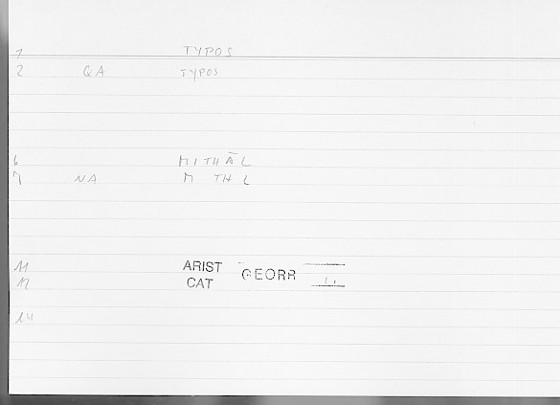 1 TYPOS
2 QA TYPOS
6 MITHĀL
7 NA M TH L
11 ARIST GEORR
12 CAT
14